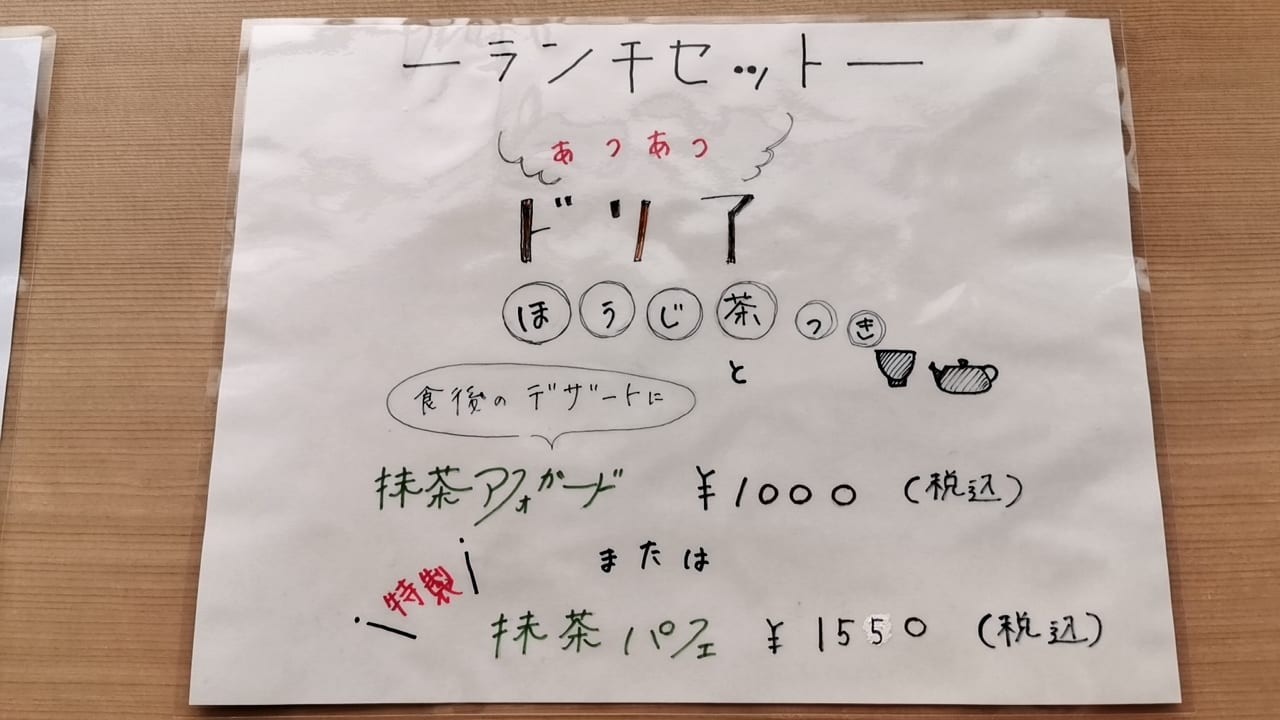 ーランチセットー
あつあつ
ドリア
ほうじ茶つき
と
食後のデザートに
抹茶アフォガード ¥1000 (税込)
または
特製
抹茶パフェ ¥1550 (税込)